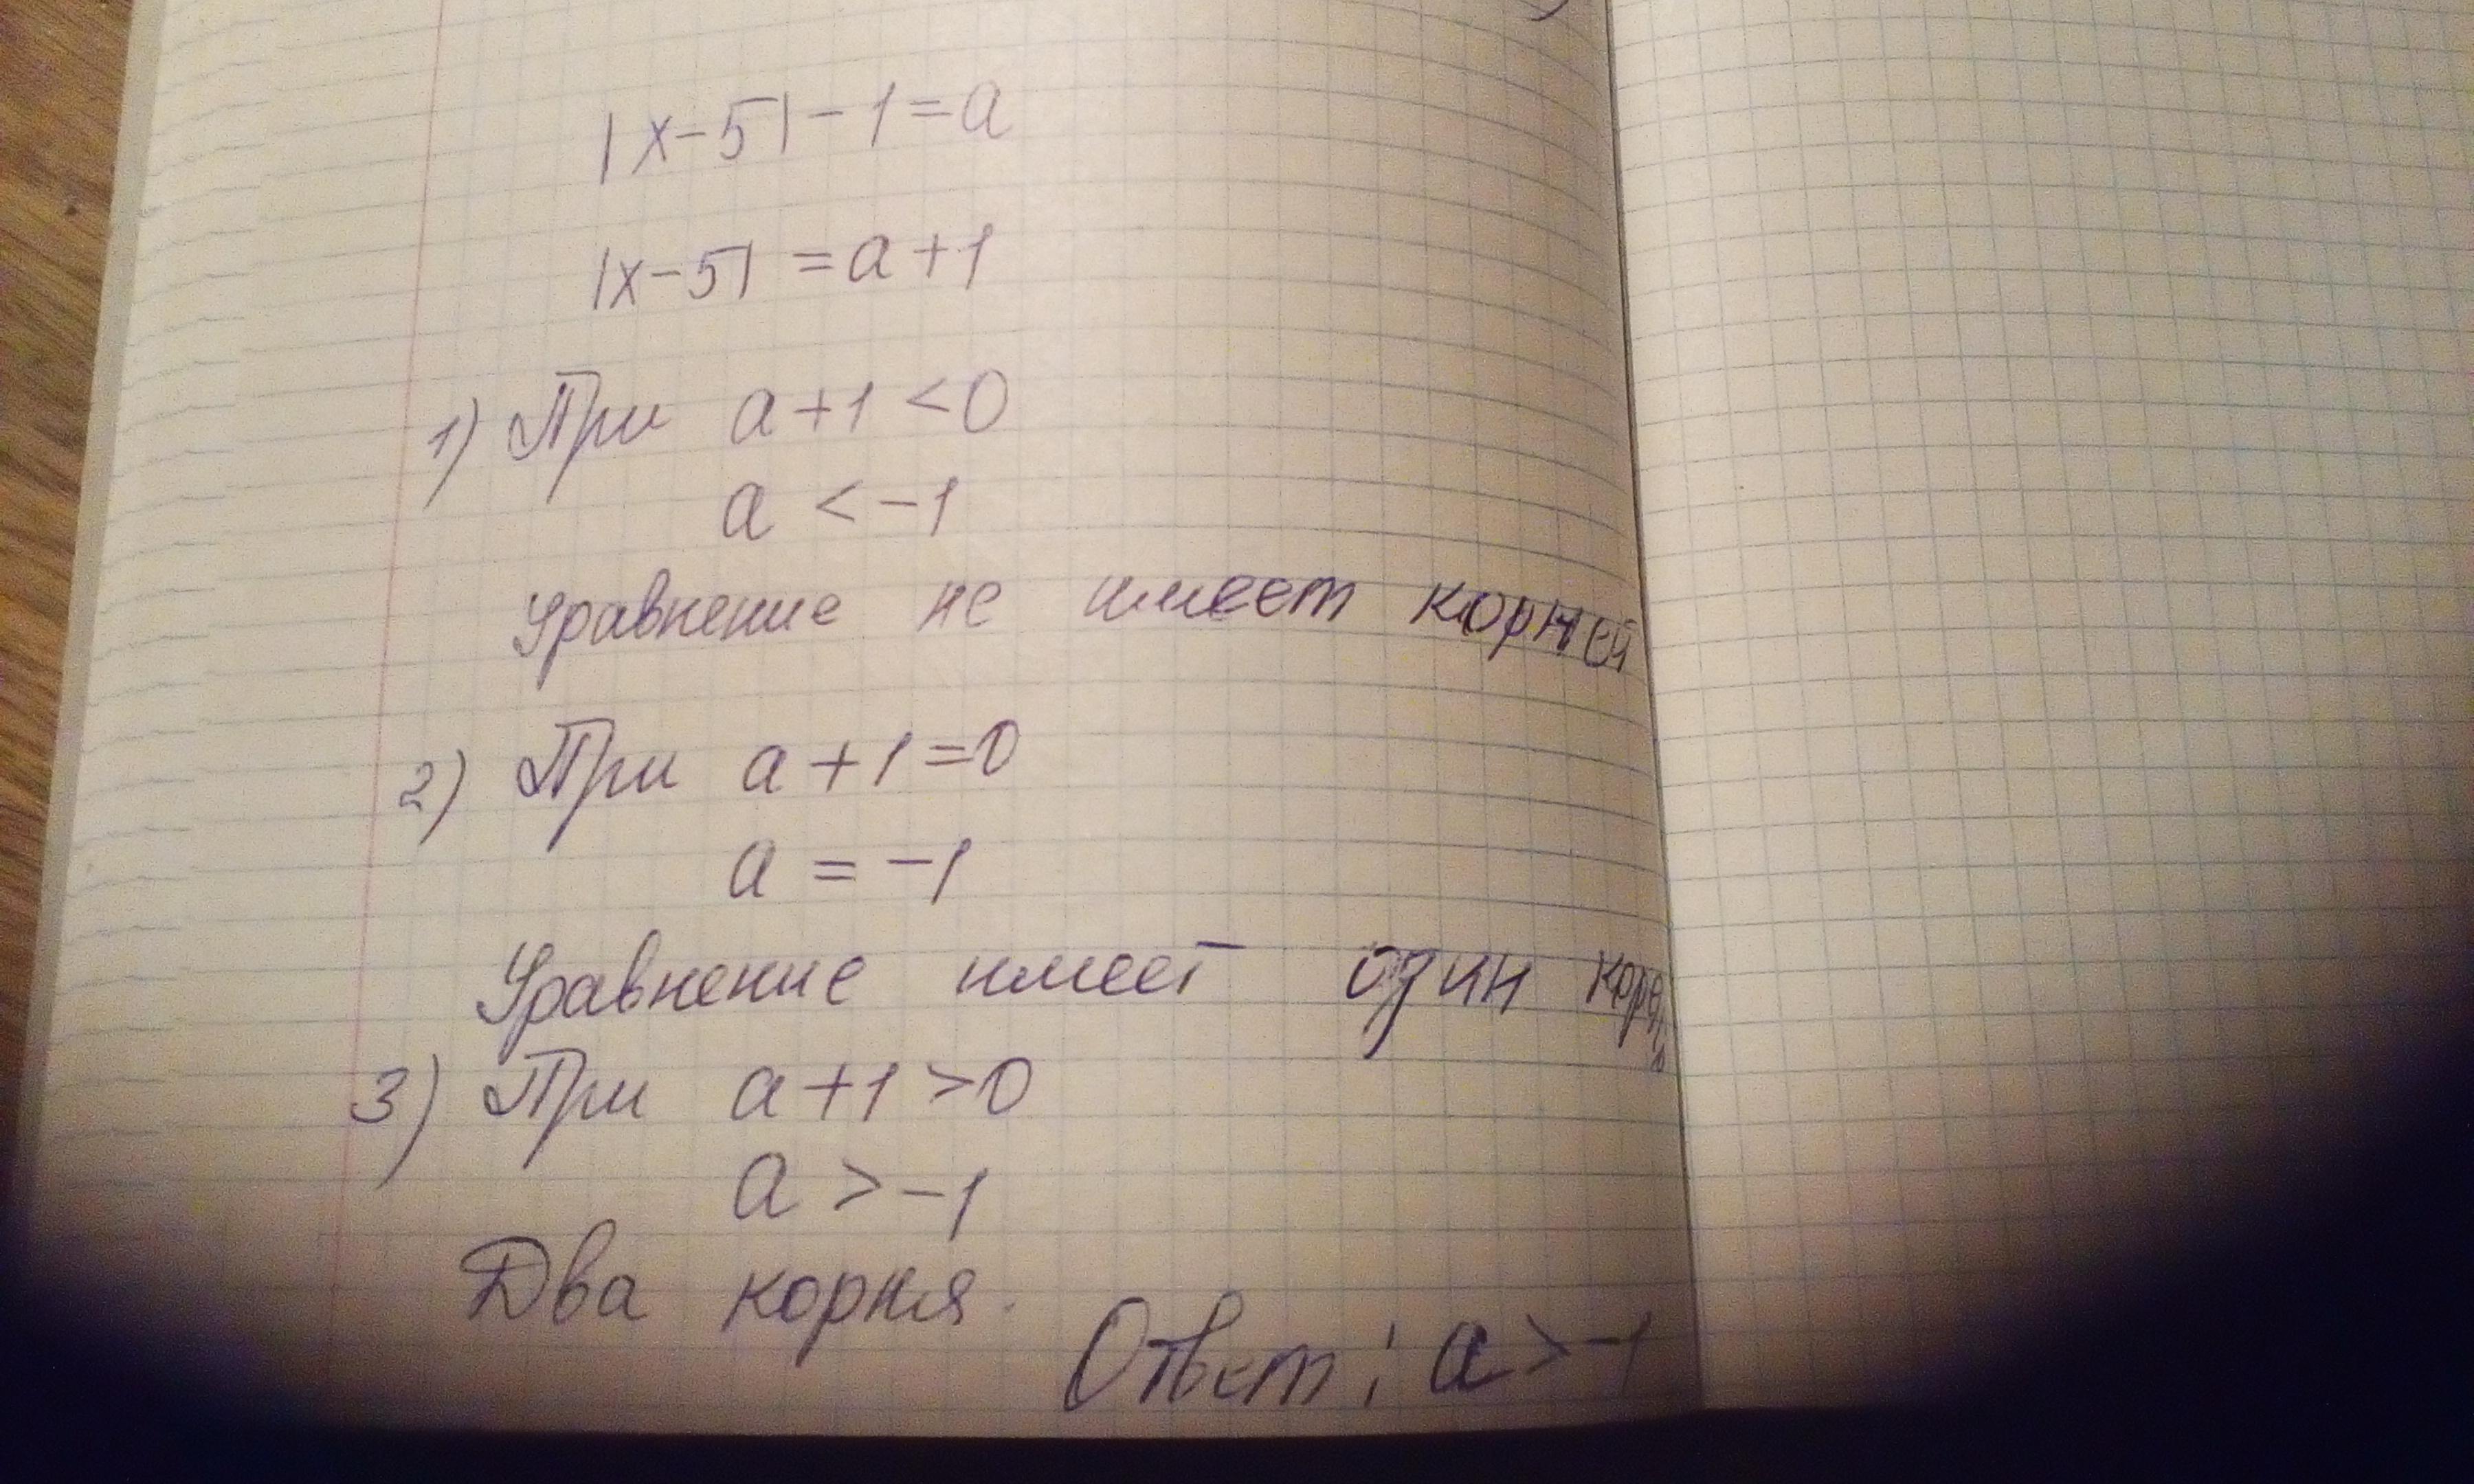 |x-5|-1=a
|x-5| =a+1
1) При a+1<0
a <-1
Уравнение не имеет корней
2) При a+1=0
a = -1
Уравнение имеет один корень
3) При a+1>0
a >-1
Два корня.
Ответ: a>-1